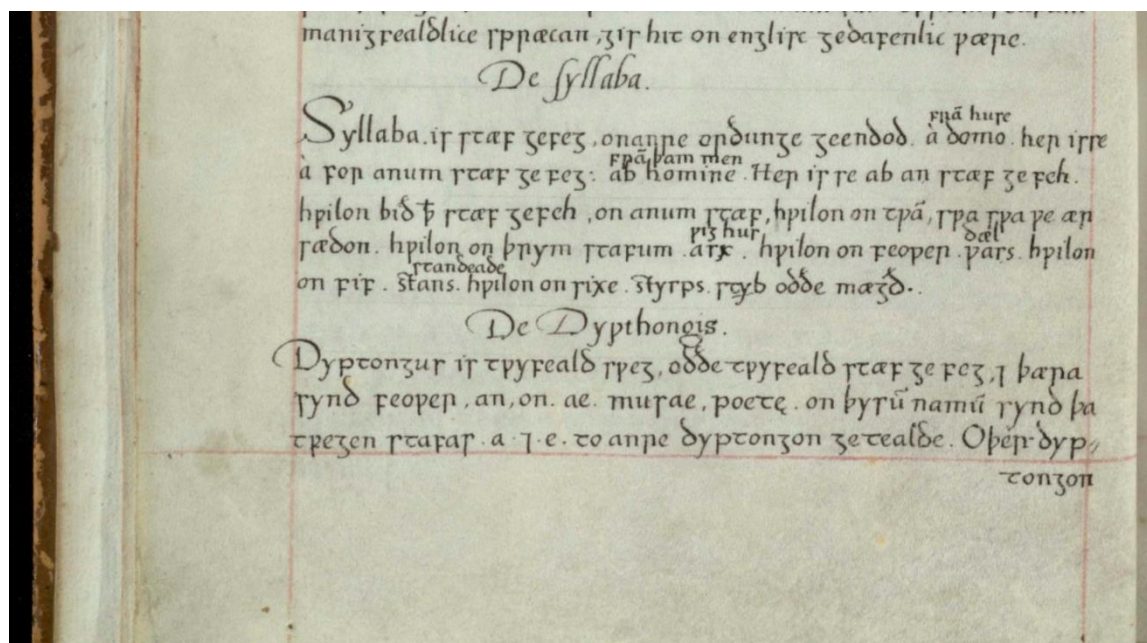 maniȝfealdlice spræcan, ȝif hit on enȝlisc ȝedafenlic wære.
De syllaba.
frā huse
Syllaba. is stæf ȝefeȝ, onanre orðunȝe ȝeendod. à domo. her isse
frā þam men
à for anum stæf ȝe feȝ: ab homine. Her is se ab an stæf ȝe feh.
hwilon bið ꝥ stæf ȝefeh, on anum stæf, hwilon on twā, swa swa we ær
wiȝ hus dæl
sædon. hwilon on þrym stafum. arx. hwilon on feower. pars. hwilon
standeade
on fif. stans. hwilon on sixe. styrps. styb oððe mæȝð.
De Dypthongis.
Dyptonȝus is twyfeald sweȝ, oððe twyfeald stæf ȝe feȝ, ⁊ þæra
synd feower, an, on. ae. musae, poetę. on þysū namū synd þa
tweȝen stafas. a. ⁊. e. to anre dyptonȝon ȝetealde. Oþer dyp⸗
tonȝon